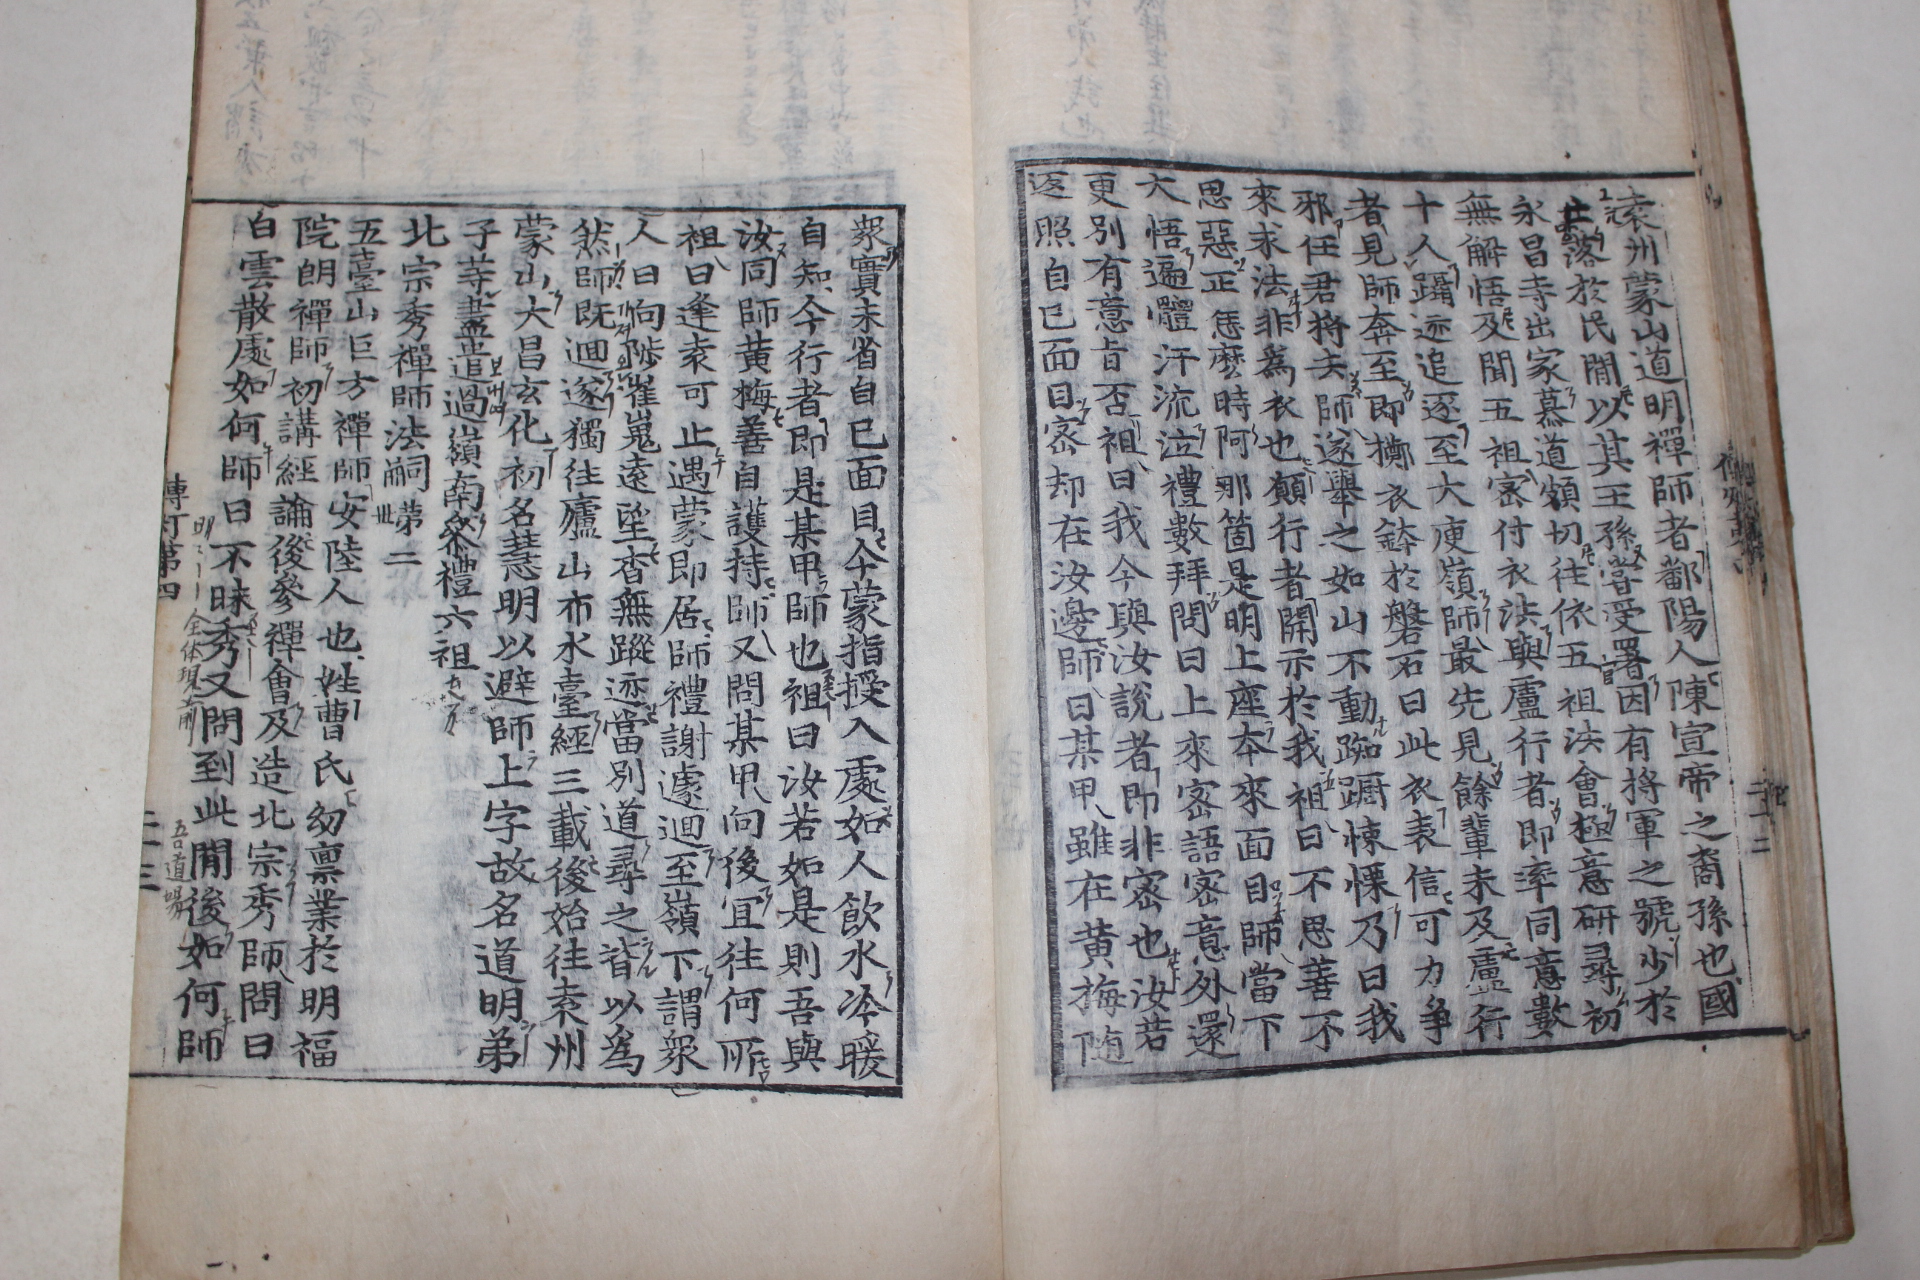 袁州蒙山道明禪師者鄱陽人陳宣帝之裔孫也國
亡落於民間以其王孫甞受署因有將軍之號少於
永昌寺出家慕道頗切往依五祖法會極意研尋初
無解悟及聞五祖宻付衣法與盧行者即率同意數
十人躡迹追逐至大庾嶺師最先見餘輩未及盧行
者見師奔至即擲衣鉢於磐石曰此衣表信可力爭
邪任君將去師遂舉之如山不動踟蹰悚慄乃曰我
來求法非爲衣也願行者開示於我祖曰不思善不
思惡正恁麽時阿那箇是明上座本來面目師當下
大悟遍體汗流泣禮數拜問曰上來宻語宻意外還
更別有意旨否祖曰我今與汝說者即非宻也汝若
返照自己面目宻却在汝邊師曰某甲雖在黄梅随
衆實未省自己面目今蒙指授入處如人飮水冷暖
自知今行者即是某甲師也祖曰汝若如是則吾與
汝同師黄梅善自護持師又問某甲向後宜往何所
祖曰逢袁可止遇蒙即居師禮謝遽迴至嶺下謂衆
人曰向陟崔嵬遠望杳無蹤迹當別道尋之皆以爲
然師旣迴遂獨往廬山布水臺經三載後始往袁州
蒙山大昌玄化初名慧明以避師上字故名道明弟
子等盡遣過嶺南叅禮六祖
北宗秀禪師法嗣第二世
五臺山巨方禪師安陸人也姓曹氏幼禀業於明福
院朗禪師初講經論後參禪會及造北宗秀師問曰
白雲散處如何師曰不昧秀又問到此間後如何師
傳灯第四
二三
全体現前
吾道場